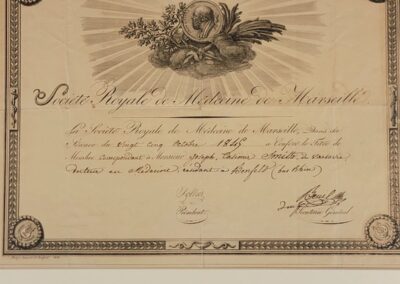 Société Royale de Médecine de Marseille
La Société Royale de Médecine de Marseille, Dans sa
Séance du vingt cinq octobre 1845 a Conféré le Titre de
Membre correspondant à Monsieur Joseph, Casimir de varsovie
docteur en Médecine, résidant à Benfeld (bas Rhin)
Président
Secrétaire Général